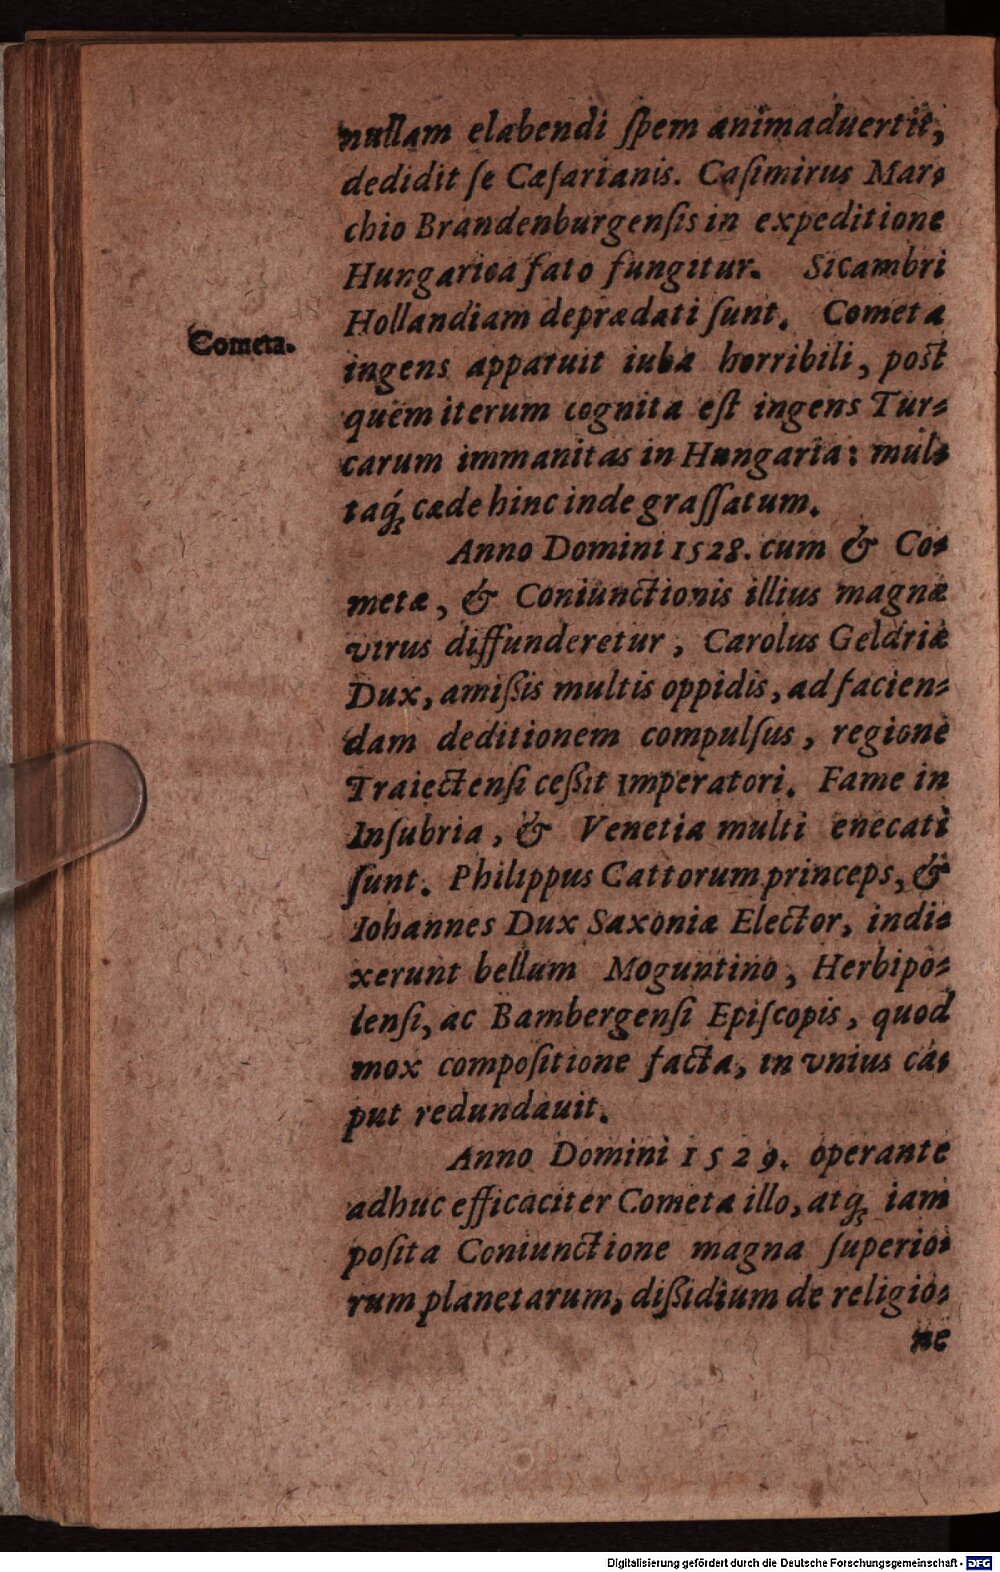 nullam elabendi ſpem animaduertit,
dedidit ſe Cæſarianis. Caſimirus Mar⸗
chio Brandenburgenſis in expeditione
Hungarica fato fungitur. Sicambri
Hollandiam deprædati ſunt. Cometa
Cometa.
ingens apparuit iuba horribili, poſt
quem iterum cognita eſt ingens Tur⸗
carum immanitas in Hungaria: mul⸗
taq́; cæde hinc inde graſſatum.
Anno Domini 1528. cum & Co⸗
metæ, & Coniunctionis illius magnæ
virus diffunderetur, Carolus Geldriæ
Dux, amißis multis oppidis, ad facien⸗
dam deditionem compulſus, regione
Traiectenſi ceßit Imperatori. Fame in
Inſubria, & Venetia multi enecati
ſunt. Philippus Cattorum princeps, &
Iohannes Dux Saxoniæ Elector, indi⸗
xerunt bellum Moguntino, Herbipo⸗
lenſi, ac Bambergenſi Epiſcopis, quod
mox compoſitione facta, in vnius ca⸗
put redundauit.
Anno Domini 1529. operante
adhuc efficaciter Cometa illo, atq; iam
poſita Coniunctione magna ſuperio⸗
rum planetarum, dißidium de religio⸗
ne
Digitalisierung gefördert durch die Deutsche Forschungsgemeinschaft - DFG